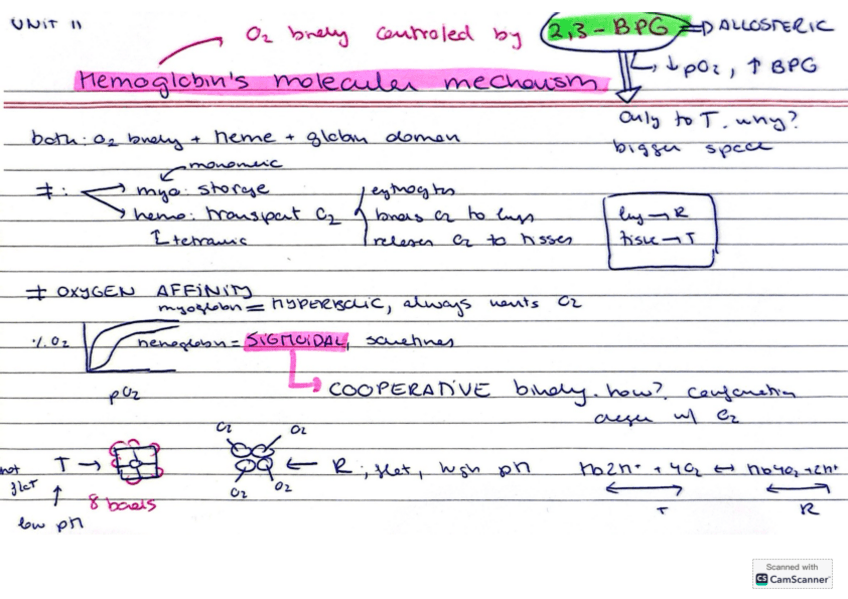 UNIT 11
O2 binding controled by 2,3-BPG => ALLOSTERIC
↳ ↓pO2, ↑ BPG
Hemoglobin's molecular mechanism
Only to T. why?
bigger space
both: O2 binding + heme + globin domain
monomeric
≠: → myo: storage
→ hemo: transport O2
tetrameric
erytrocytes
binds O2 to lungs
releases O2 to tissues
lung → R
tissue → T
≠ OXYGEN AFFINITY
myoglobin = HYPERBOLIC, always wants O2
%O2
hemoglobin = SIGMOIDAL, sometimes
pO2
COOPERATIVE binding. how? conformation
changes w/ O2
O2 O2
not flat T →
← R, flat, high pH
Hb2H+ + 4O2 ↔ Hb4O2 + 2H+
O2 O2
8 bonds
low pH
T R
Scanned with
CS CamScanner